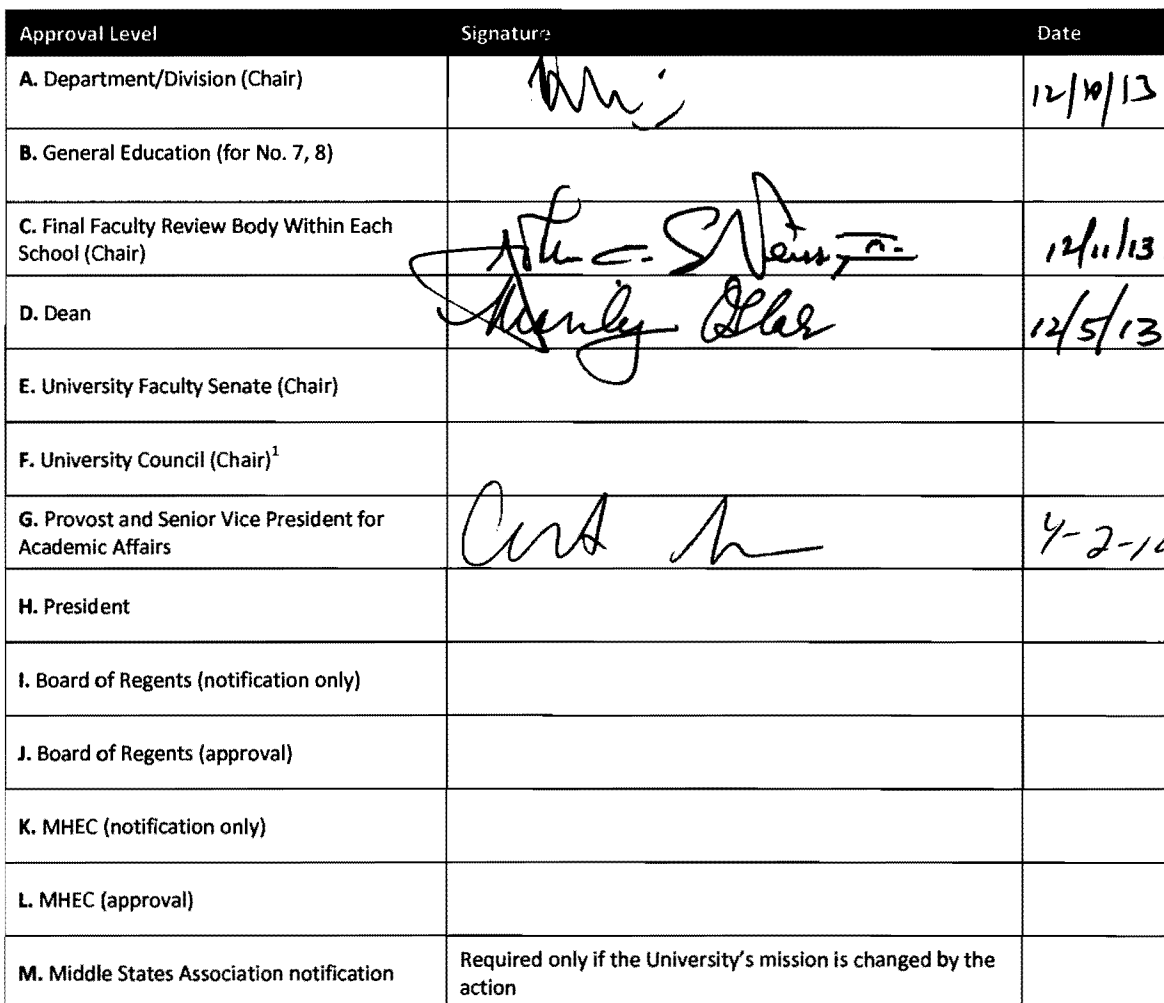 Approval Level Signature Date
A. Department/Division (Chair) 12/10/13
B. General Education (for No. 7, 8)
C. Final Faculty Review Body Within Each
School (Chair) 12/11/13
D. Dean 12/5/13
E. University Faculty Senate (Chair)
F. University Council (Chair)¹
G. Provost and Senior Vice President for
Academic Affairs 4-2-1
H. President
I. Board of Regents (notification only)
J. Board of Regents (approval)
K. MHEC (notification only)
L. MHEC (approval)
M. Middle States Association notification Required only if the University's mission is changed by the
action